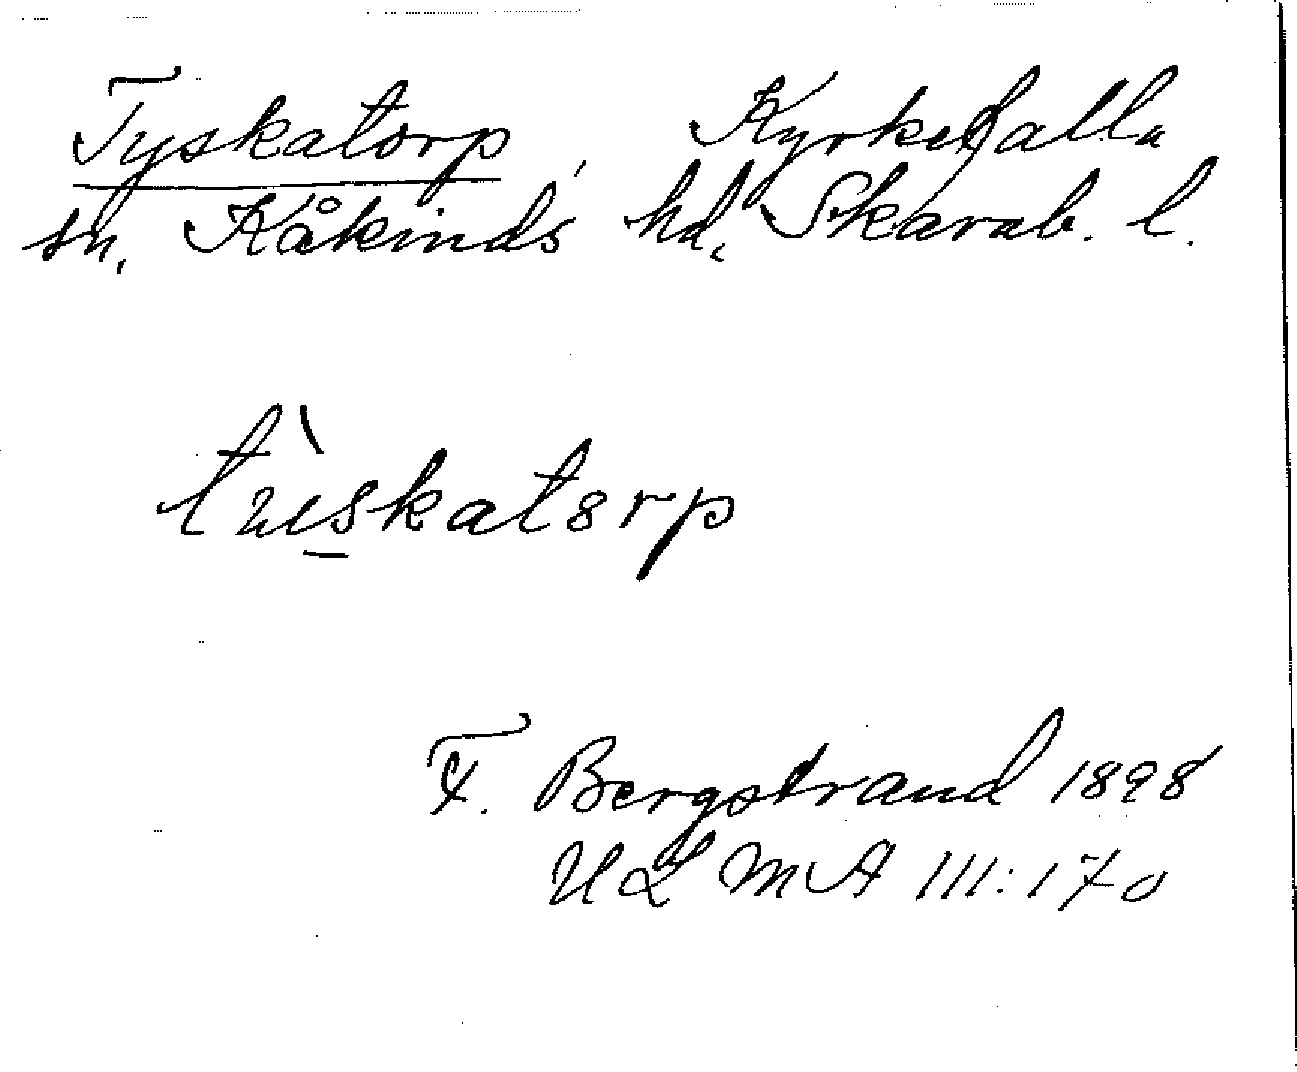 Tyskatorp, Kyrkefalla
sn, Kåkinds hd, Skarab. l.
tùskatorp
F. Bergstrand 1898
ULMA III:170